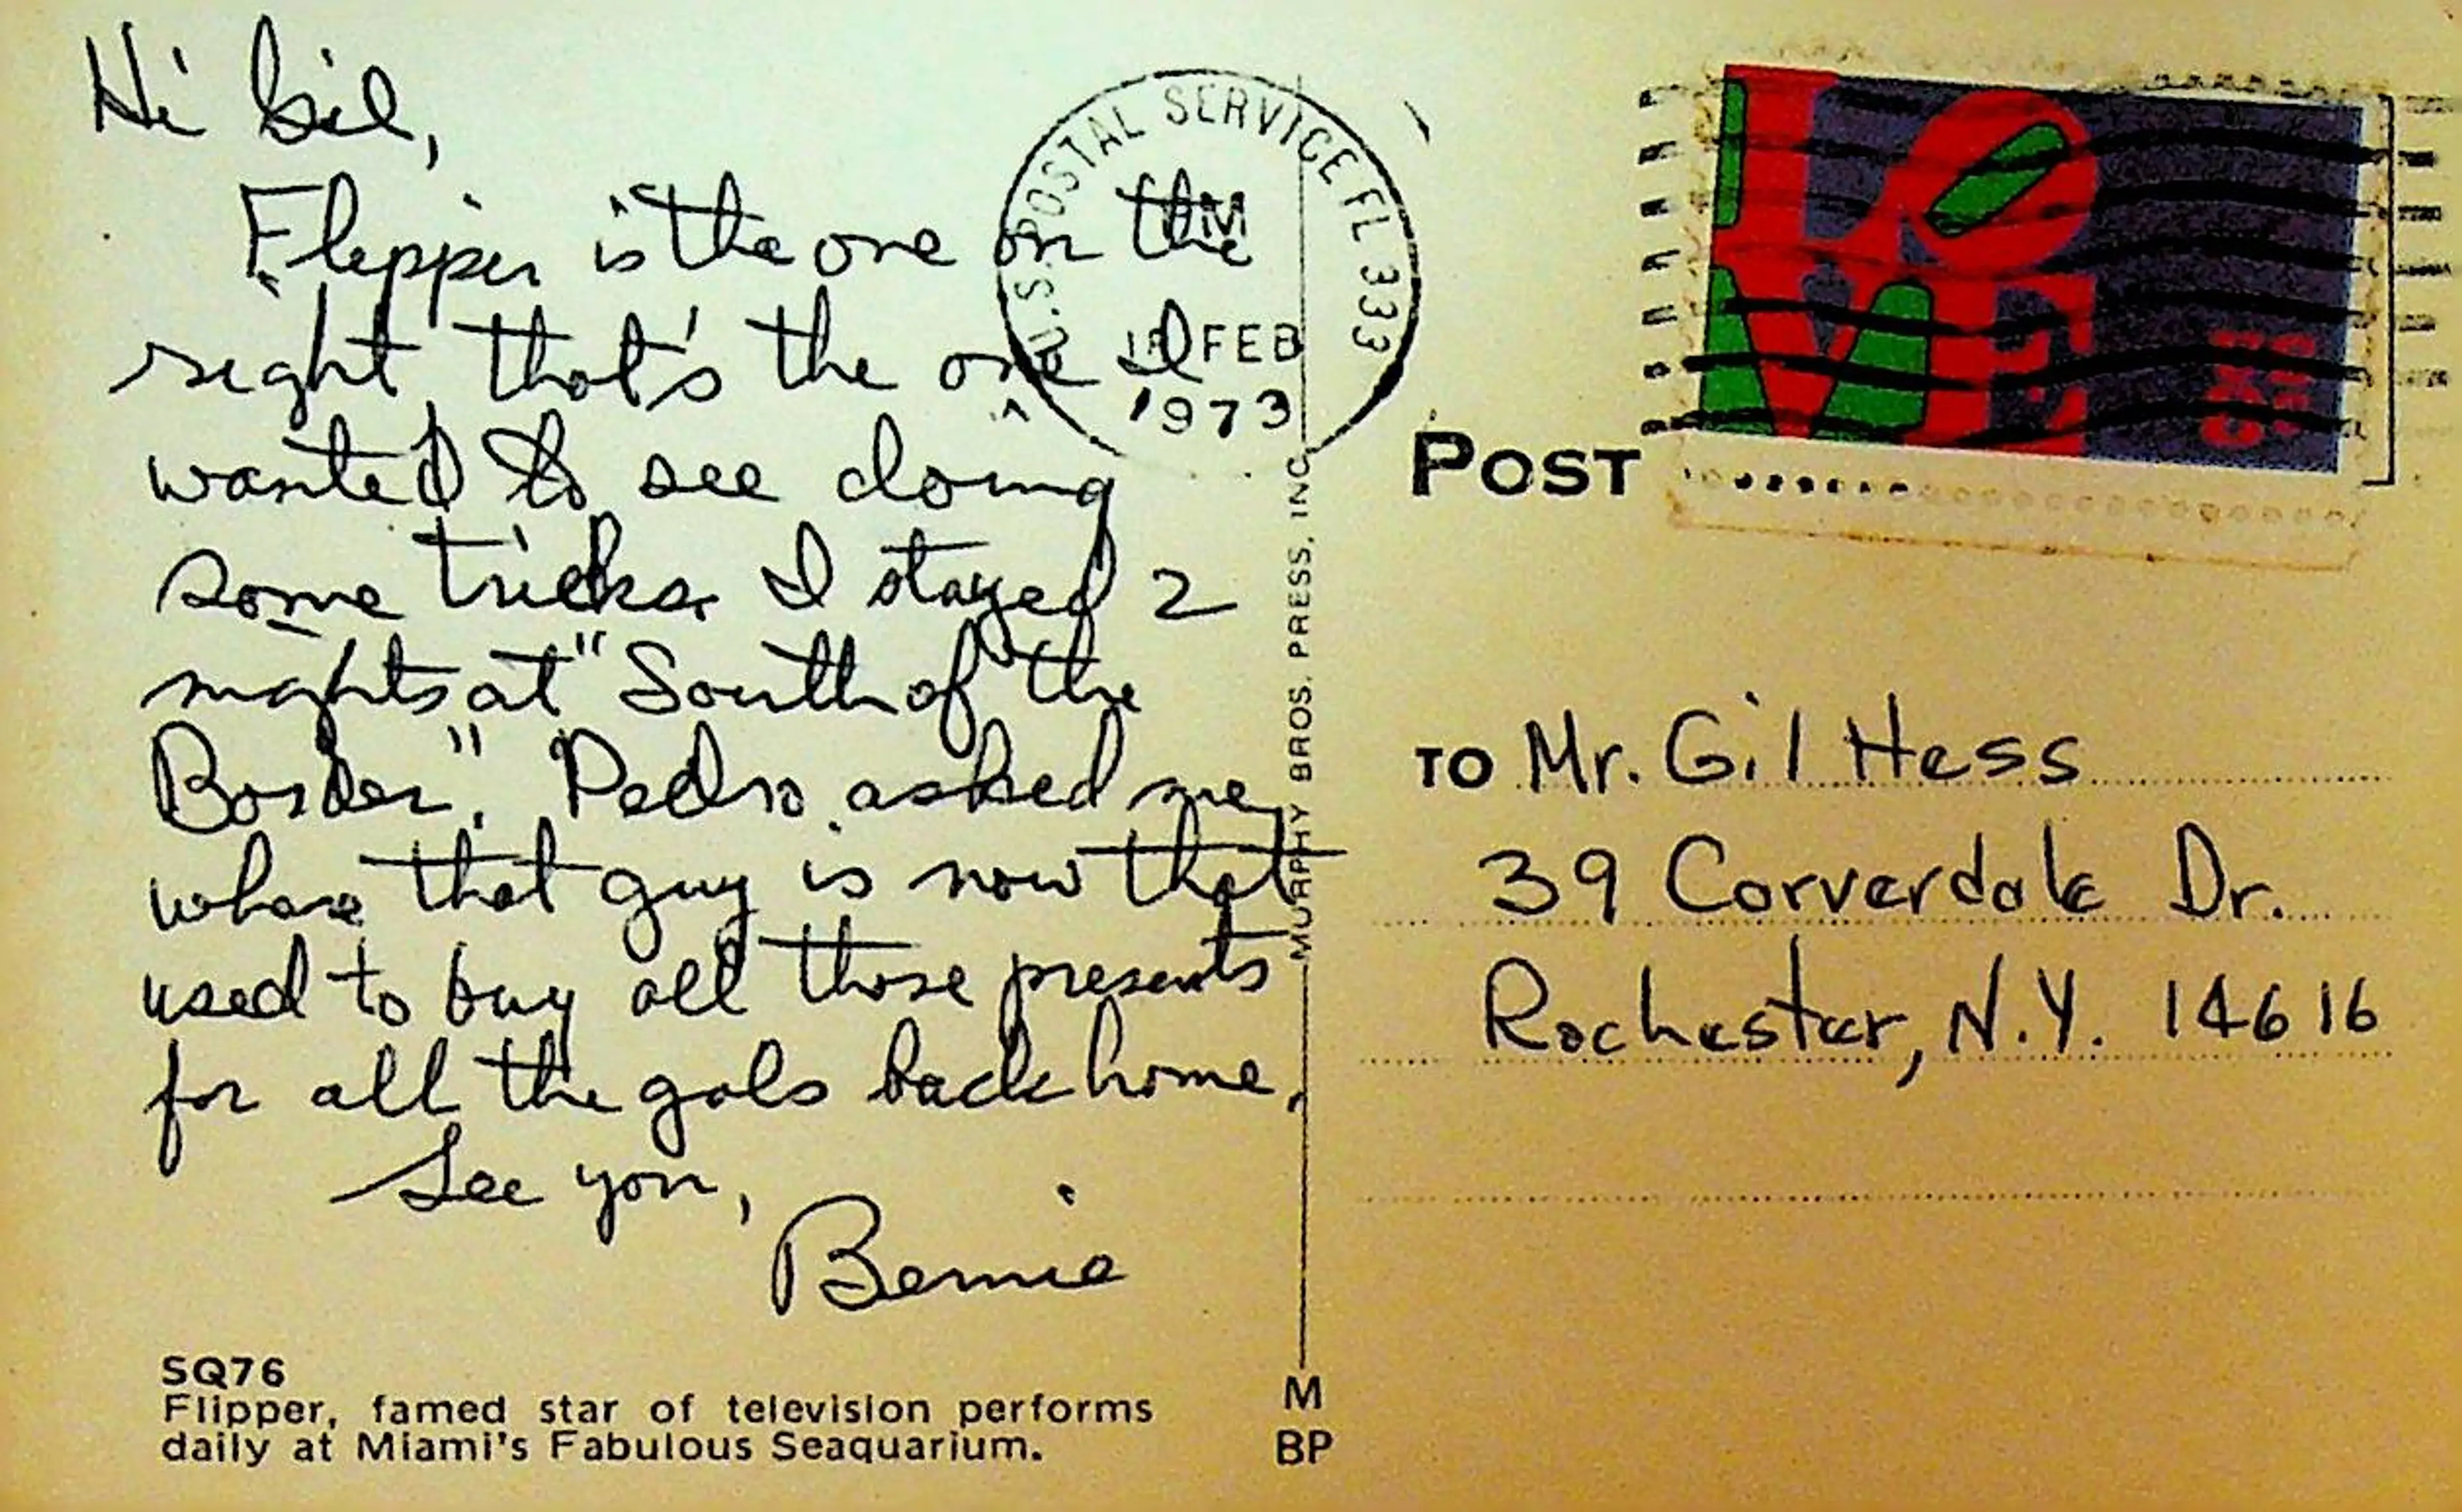 Hi Gil,
Flipper is the one on the
right, that's the one I
wanted to see doing
some tricks. I stayed 2
nights at "South of the
Border". Pedro asked me
where that guy is now that
used to buy all those presents
for all the gals back home.
See you,
Bernie
SQ76
Flipper, famed star of television performs
daily at Miami's Fabulous Seaquarium.
U.S. POSTAL SERVICE FL 333
PM
FEB
1973
MURPHY BROS. PRESS, INC.
M
BP
LOVE
POST
TO Mr. Gil Hess
39 Corverdale Dr.
Rochester, N.Y. 14616